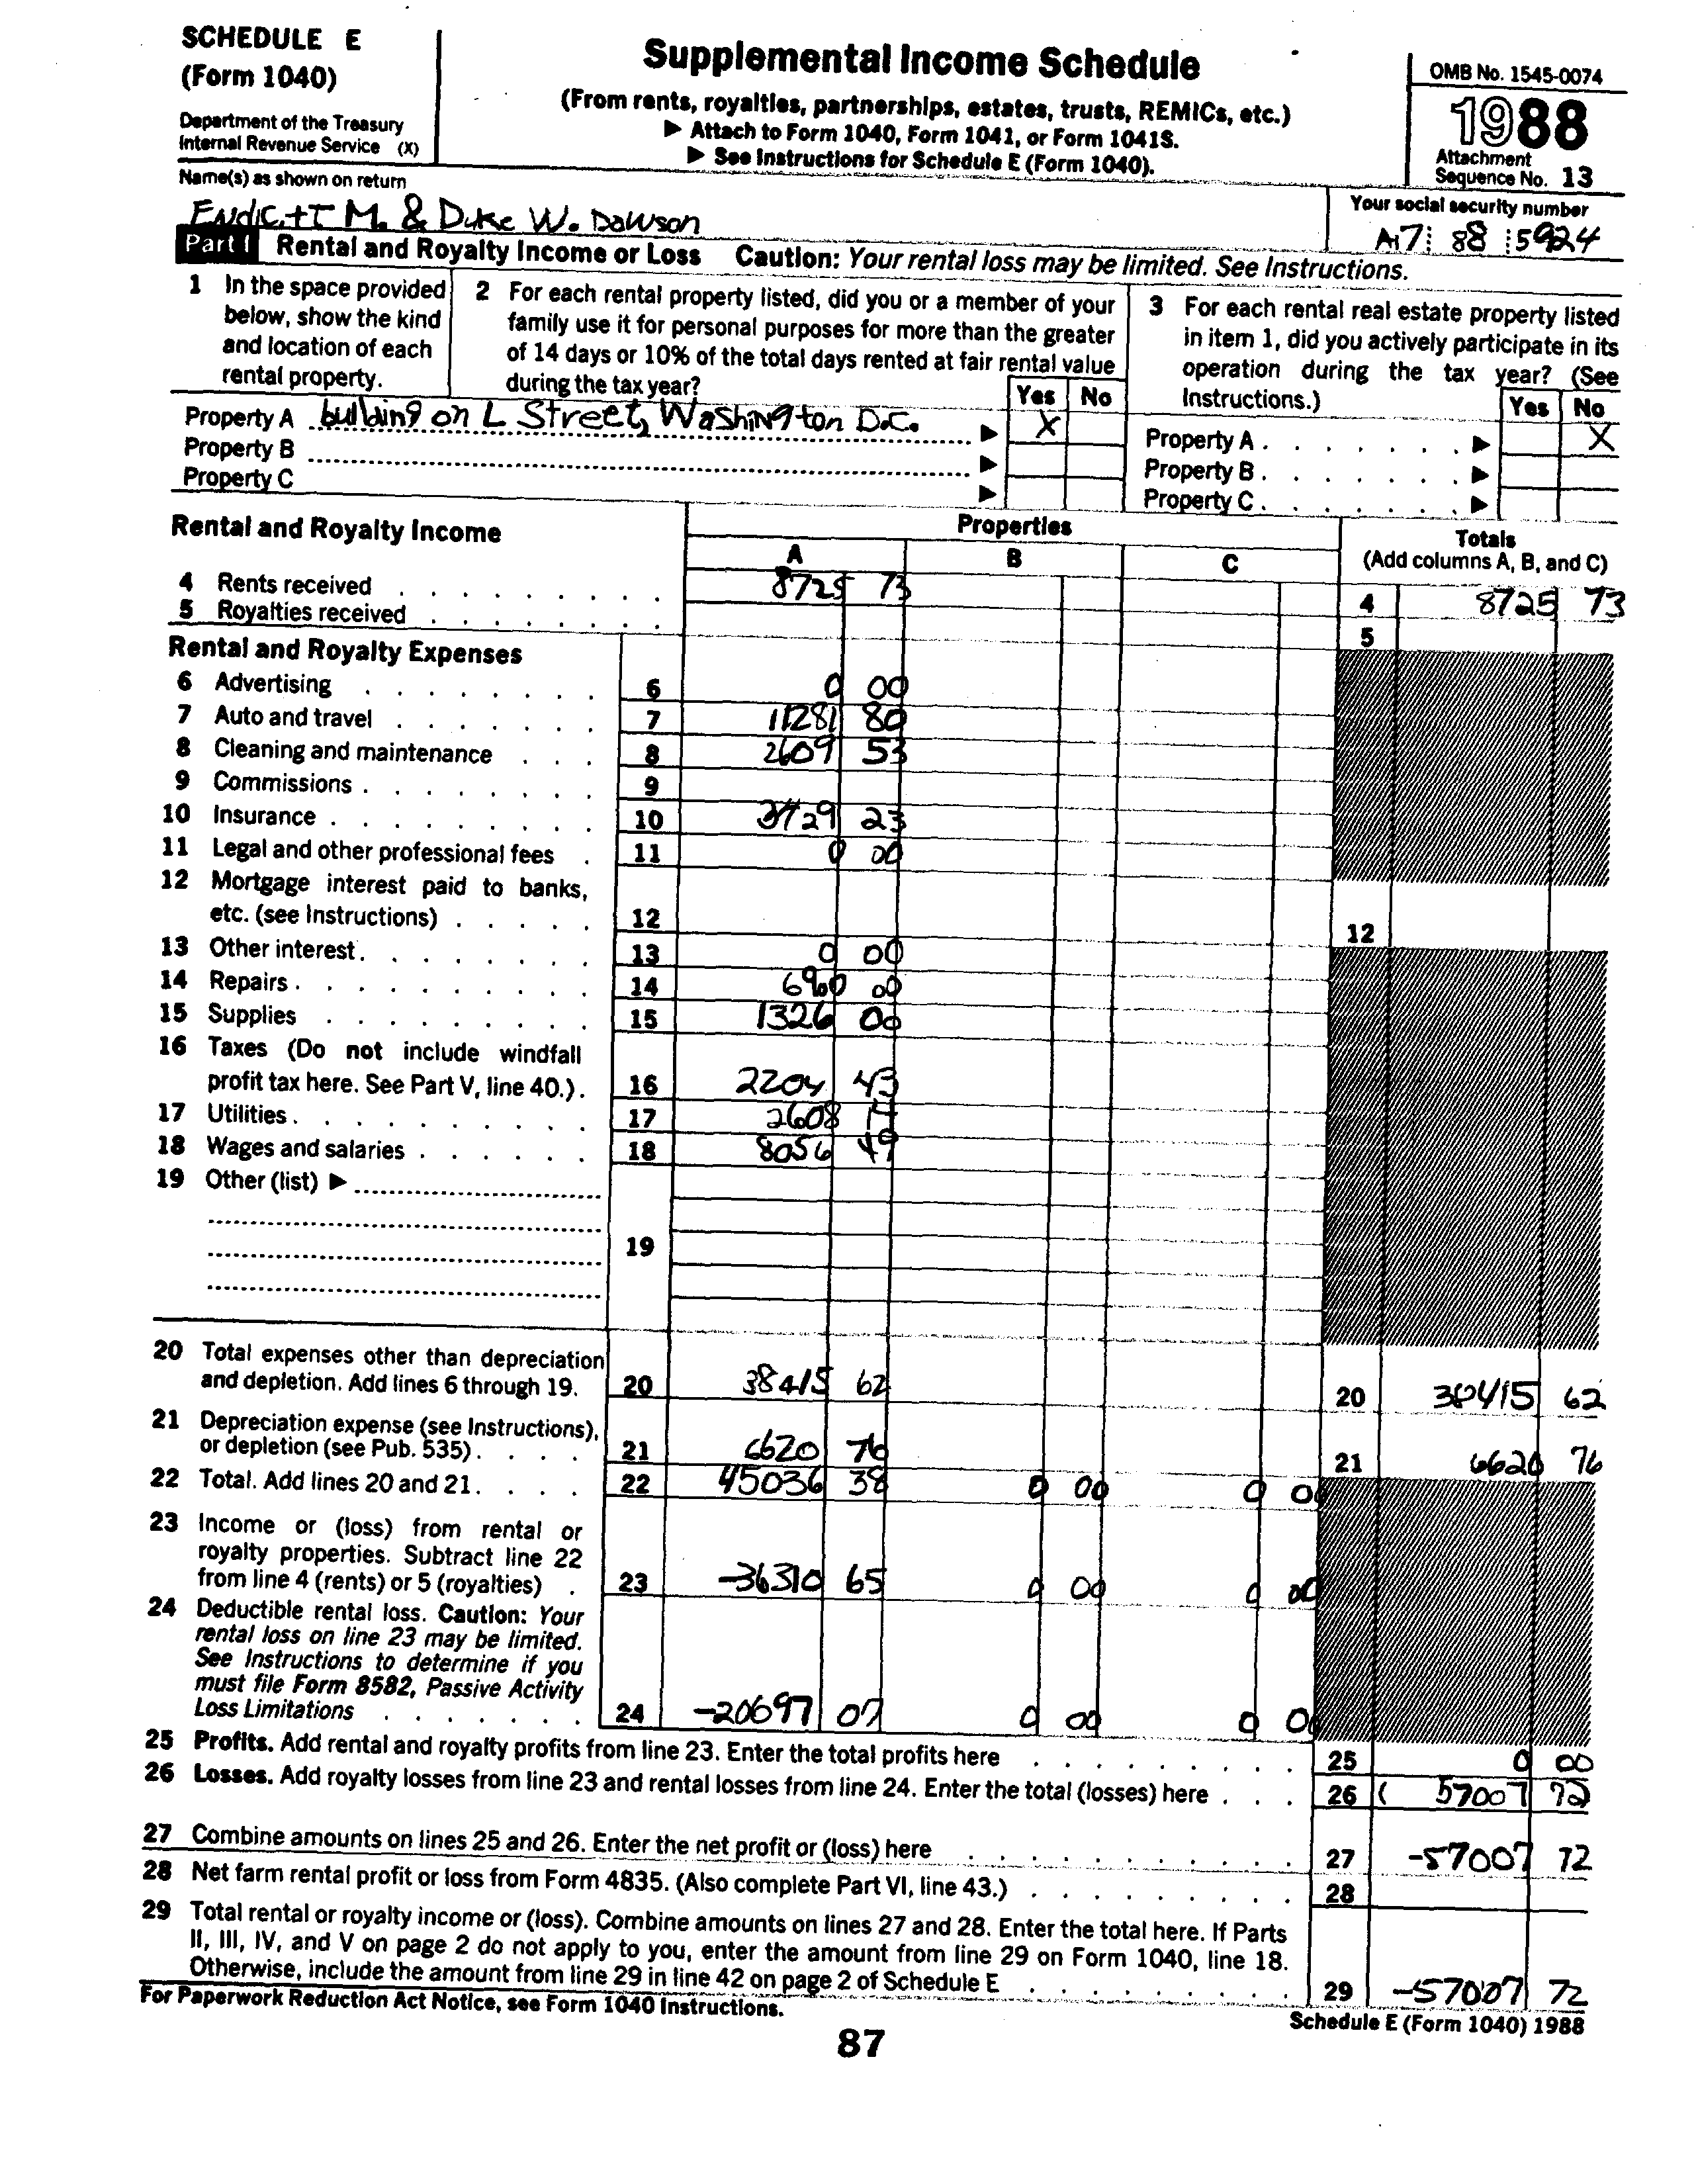 SCHEDULE E
(Form 1040)
Department of the Treasury
Internal Revenue Service (X)
Supplemental Income Schedule
(From rents, royalties, partnerships, estates, trusts, REMICs, etc.)
▶ Attach to Form 1040, Form 1041, or Form 1041S.
▶ See Instructions for Schedule E (Form 1040).
OMB No. 1545-0074
1988
Attachment
Sequence No. 13
Name(s) as shown on return
Endicott M. & Duke W. Dawson
Your social security number
88 5924
Part I Rental and Royalty Income or Loss Caution: Your rental loss may be limited. See Instructions.
1 In the space provided
below, show the kind
and location of each
rental property.
2 For each rental property listed, did you or a member of your
family use it for personal purposes for more than the greater
of 14 days or 10% of the total days rented at fair rental value
during the tax year?
Yes No
3 For each rental real estate property listed
in item 1, did you actively participate in its
operation during the tax year? (See
Instructions.)
Yes No
Property A building on L Street, Washington D.C. ▶ X
Property B ▶
Property C ▶
Property A . . . . . . . ▶ X
Property B . . . . . . . ▶
Property C . . . . . . . ▶
Rental and Royalty Income
Properties
A B C
Totals
(Add columns A, B, and C)
4 Rents received 8725 73 4 8725 73
5 Royalties received 5
Rental and Royalty Expenses
6 Advertising 6 0 00
7 Auto and travel 7 11281 80
8 Cleaning and maintenance 8 2609 53
9 Commissions 9
10 Insurance 10 3729 23
11 Legal and other professional fees 11 0 00
12 Mortgage interest paid to banks,
etc. (see Instructions) 12 12
13 Other interest 13 0 00
14 Repairs 14 6900 00
15 Supplies 15 1326 00
16 Taxes (Do not include windfall
profit tax here. See Part V, line 40.) 16 2204 43
17 Utilities 17 2608 14
18 Wages and salaries 18 8056 49
19 Other (list) ▶
19
20 Total expenses other than depreciation
and depletion. Add lines 6 through 19. 20 38415 62 20 38415 62
21 Depreciation expense (see Instructions),
or depletion (see Pub. 535) 21 6620 76 21 6620 76
22 Total. Add lines 20 and 21 22 45036 38 0 00 0 00
23 Income or (loss) from rental or
royalty properties. Subtract line 22
from line 4 (rents) or 5 (royalties) 23 -36310 65 0 00 0 00
24 Deductible rental loss. Caution: Your
rental loss on line 23 may be limited.
See Instructions to determine if you
must file Form 8582, Passive Activity
Loss Limitations 24 -20697 07 0 00 0 00
25 Profits. Add rental and royalty profits from line 23. Enter the total profits here 25 0 00
26 Losses. Add royalty losses from line 23 and rental losses from line 24. Enter the total (losses) here 26 ( 57007 72
27 Combine amounts on lines 25 and 26. Enter the net profit or (loss) here 27 -57007 72
28 Net farm rental profit or loss from Form 4835. (Also complete Part VI, line 43.) 28
29 Total rental or royalty income or (loss). Combine amounts on lines 27 and 28. Enter the total here. If Parts
II, III, IV, and V on page 2 do not apply to you, enter the amount from line 29 on Form 1040, line 18.
Otherwise, include the amount from line 29 in line 42 on page 2 of Schedule E 29 -57007 72
For Paperwork Reduction Act Notice, see Form 1040 Instructions.
Schedule E (Form 1040) 1988
87